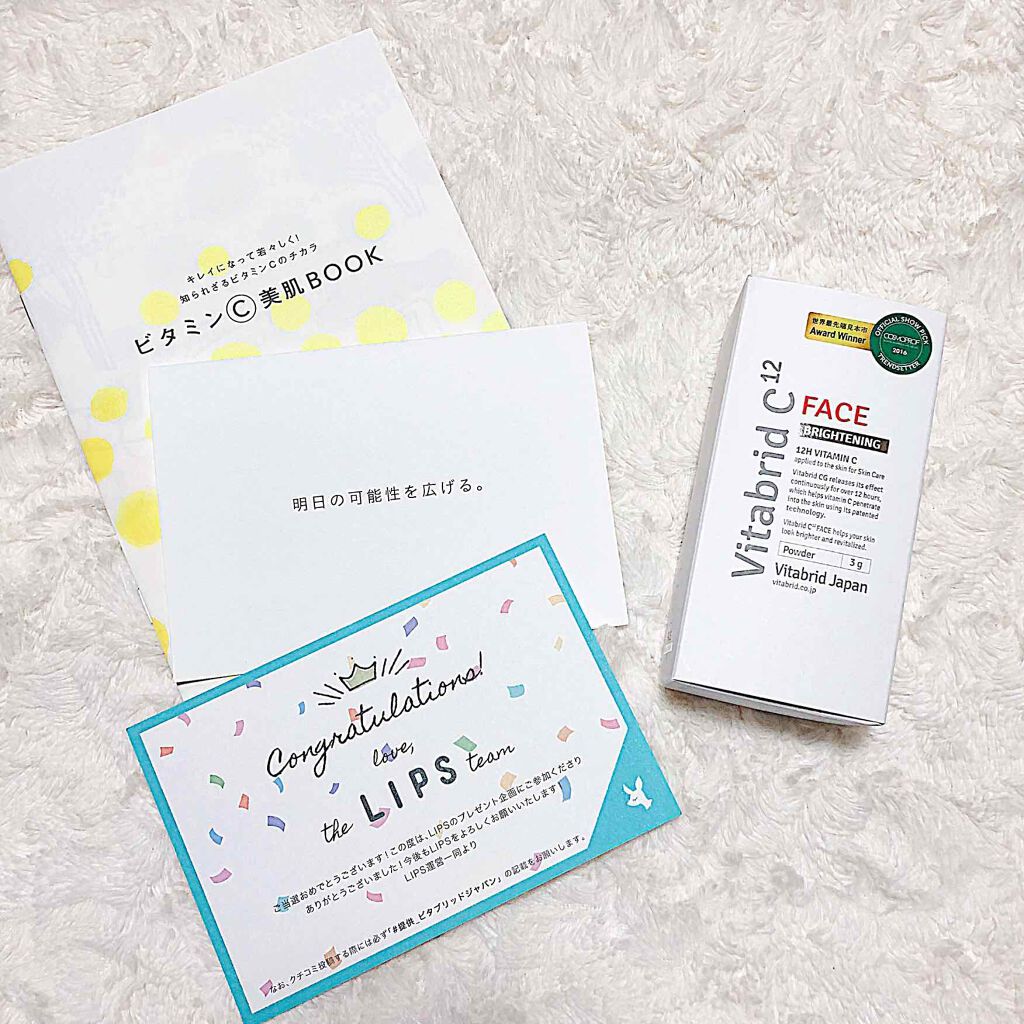 キレイになって若々しく!
知られざるビタミンCのチカラ
ビタミンⒸ美肌BOOK
明日の可能性を広げる。
Congratulations!
love,
the LIPS team
ご当選おめでとうございます!この度は、LIPSのプレゼント企画にご参加くださり
ありがとうございました!今後もLIPSをよろしくお願いいたします!
LIPS運営一同より
なお、クチコミ投稿する際には必ず「#提供_ビタブリッドジャパン」の記載をお願いします。
世界最先端見本市
Award Winner
OFFICIAL SHOW PICK
COSMOPROF
2016
TRENDSETTER
Vitabrid C12
FACE
BRIGHTENING
12H VITAMIN C
applied to the skin for Skin Care
Vitabrid CG releases its effect
continuously for over 12 hours,
which helps vitamin C penetrate
into the skin using its patented
technology.
Vitabrid C12 FACE helps your skin
look brighter and revitalized.
Powder 3 g
Vitabrid Japan
vitabrid.co.jp